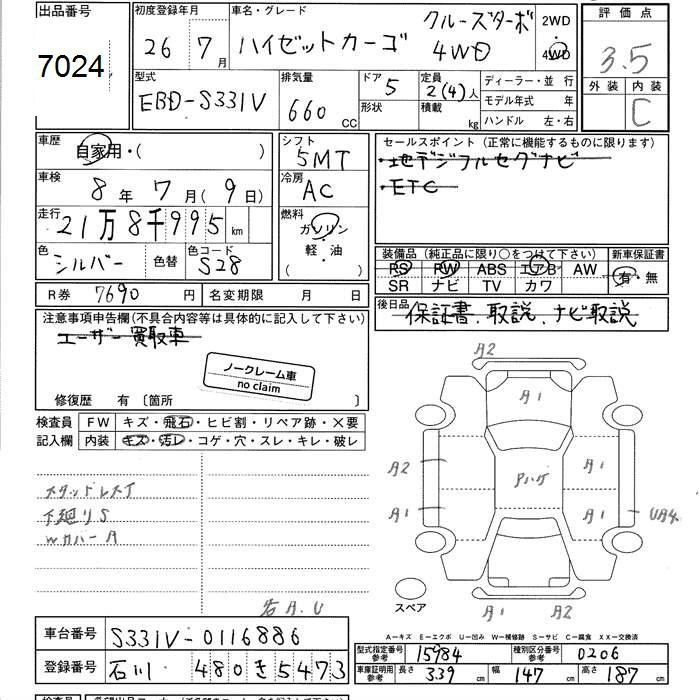 出品番号
7024
初度登録年月
26 7月
車名・グレード
ハイゼットカーゴ クルーズターボ 4WD
2WD
4WD
評価点
3.5
外装 内装
C
型式
EBD-S331V
排気量
660 CC
ドア 5
形状
定員
2(4)人
積載 kg
ディーラー・並行
モデル年式 年
ハンドル 左・右
車歴
自家用・( )
車検
8年7月(9日)
走行
21万8千995km
色
シルバー
色替
色コード
S28
シフト
5MT
冷房
AC
燃料
ガソリン
軽・油
( )
セールスポイント(正常に機能するものに限ります)
・地デジフルセグナビ
・ETC
装備品(純正品に限り○をつけて下さい)
新車保証書
PS PW ABS エアB AW
SR ナビ TV カワ
有・無
R券 7690円
名変期限 月 日
後日品
保証書、取説、ナビ取説
注意事項申告欄(不具合内容等は具体的に記入して下さい)
ユーザー買取車
ノークレーム車
no claim
修復歴 有〔箇所 〕
検査員
記入欄
FW キズ・飛石・ヒビ割・リペア跡・×要
内装 キズ・汚レ・コゲ・穴・スレ・キレ・破レ
スタッドレス
下廻りS
WカバーA
A2
A1
A2
A1
Pハゲ
A1
A1
UA4
A1 A2
スペア
A-キズ E-エクボ U-凹み W-補修跡 S-サビ C-腐食 XX-交換済
車台番号
S331V-0116886
登録番号
石川 480 き 5473
型式指定番号
参考
15984
種別区分番号
参考
0206
車庫証明用
参考
長さ 339cm
幅 147cm
高さ 187cm